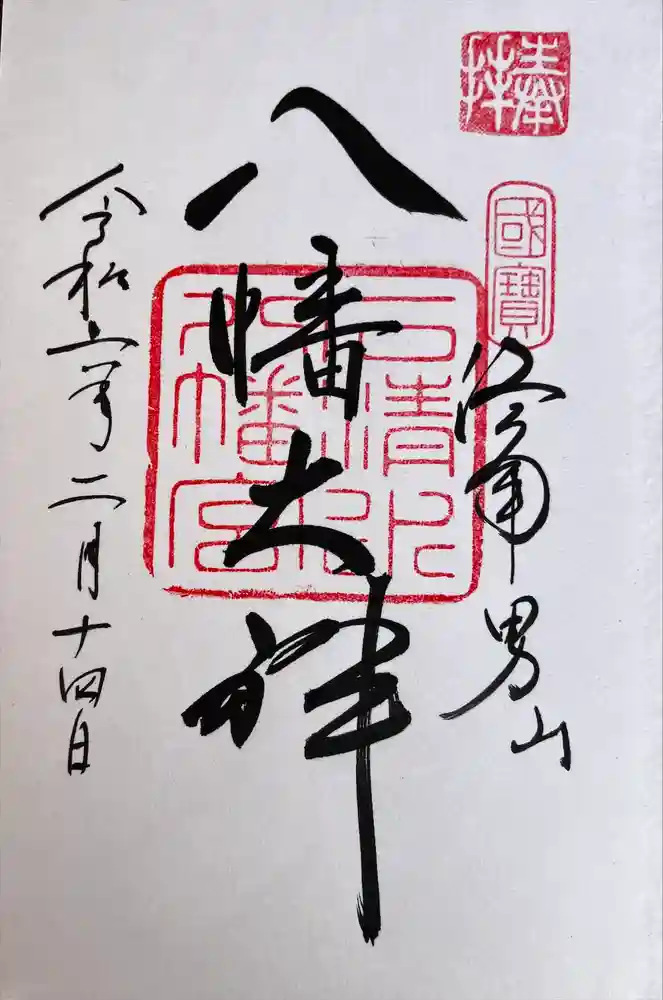 捧拝
國寶
洛南男山
八幡大神
石清水八幡宮
令和六年二月十四日